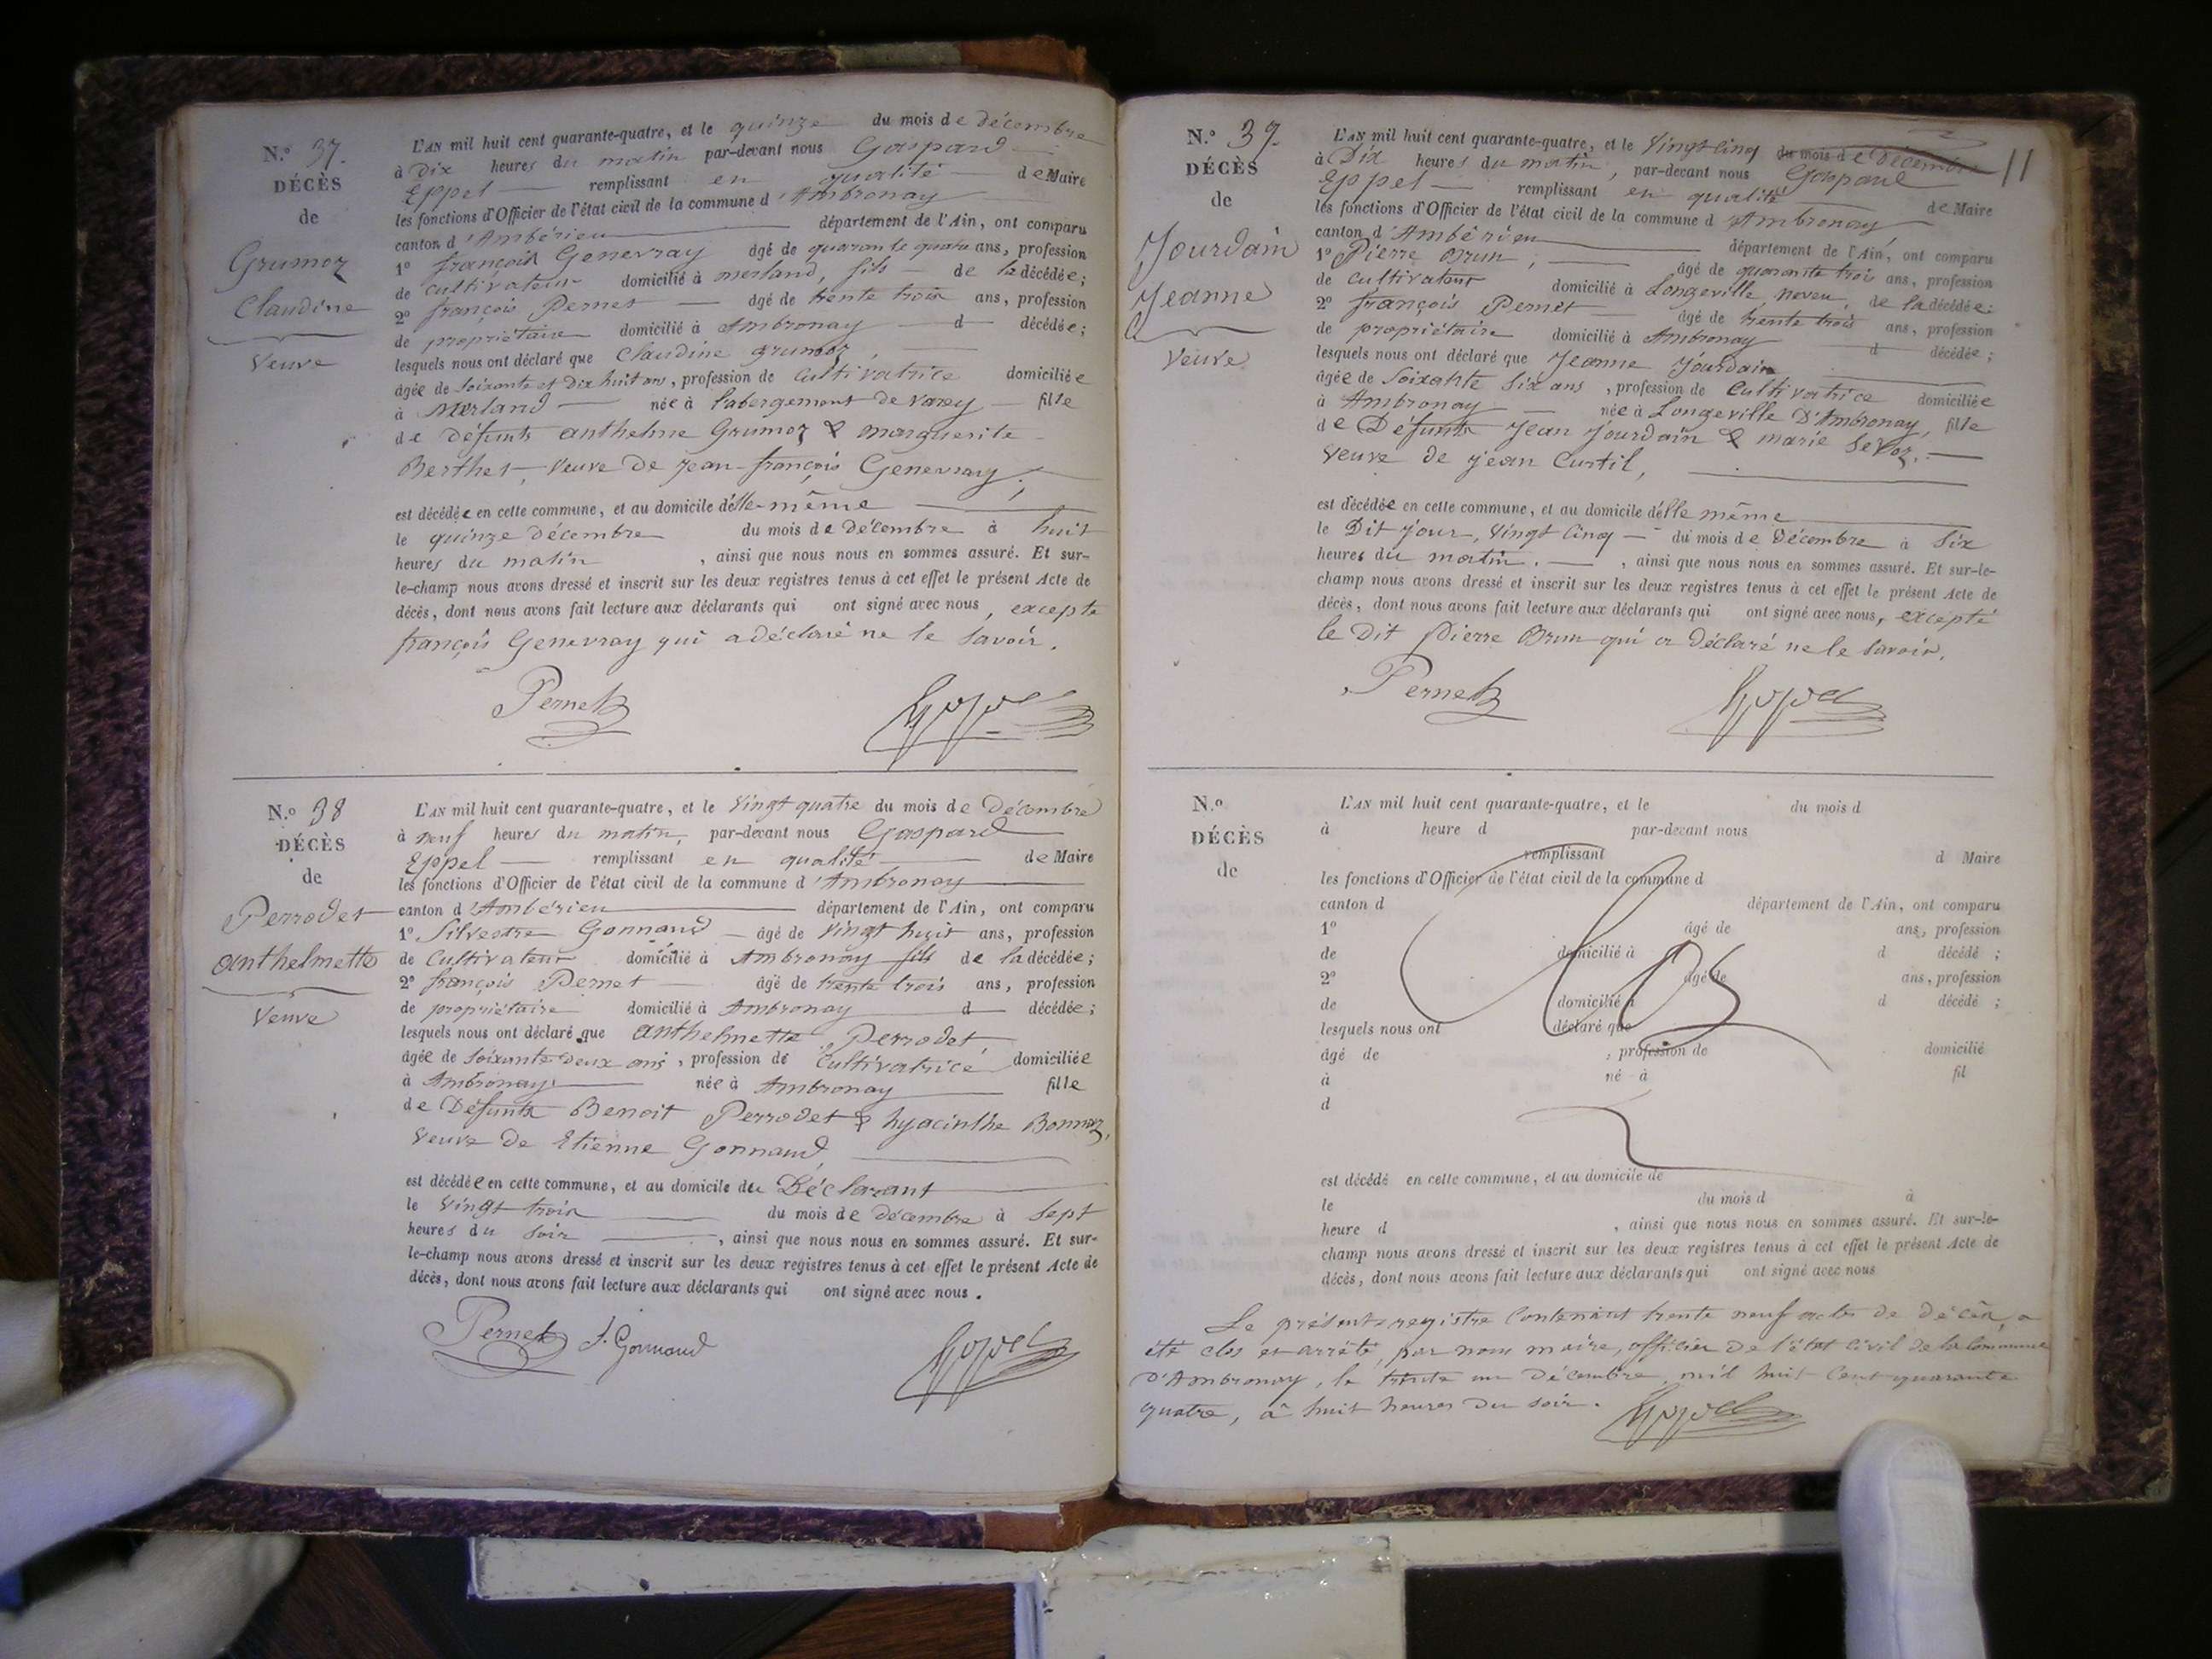 N.º 37.
DÉCÈS
de
Grumoz
Claudine
Veuve
L'AN mil huit cent quarante-quatre, et le quinze du mois de décembre
à Dix heures du matin par-devant nous Gaspard
Eppel remplissant en qualité de Maire
les fonctions d'Officier de l'état civil de la commune d'Ambronay
canton d'Ambérieu département de l'Ain, ont comparu
1º françois Genevray âgé de quarante quatre ans, profession
de cultivateur domicilié à merland, fils de la décédée;
2º françois Pernet âgé de trente trois ans, profession
de propriétaire domicilié à Ambronay d décédée;
lesquels nous ont déclaré que Claudine grumoz,
âgée de soixante et Dix huit ans, profession de Cultivatrice domiciliée
à Merland née à l'abergement de varey fille
de défunts anthelme Grumoz & marguerite
Berthet, veuve de jean-françois Genevray;
est décédée en cette commune, et au domicile d'elle-même
le quinze décembre du mois de décembre à huit
heures du matin, ainsi que nous nous en sommes assuré. Et sur-
le-champ nous avons dressé et inscrit sur les deux registres tenus à cet effet le présent Acte de
décès, dont nous avons fait lecture aux déclarants qui ont signé avec nous, excepté
françois Genevray qui a déclaré ne le savoir.
Pernet Eppel
N.º 38
DÉCÈS
de
Perrodet
anthelmette
Veuve
L'AN mil huit cent quarante-quatre, et le vingt quatre du mois de Décembre
à neuf heures du matin, par-devant nous Gaspard
Eppel remplissant en qualité de Maire
les fonctions d'Officier de l'état civil de la commune d'Ambronay
canton d'Ambérieu département de l'Ain, ont comparu
1º Silvestre Gonnand âgé de vingt huit ans, profession
de Cultivateur domicilié à Ambronay fils de la décédée;
2º françois Pernet âgé de trente trois ans, profession
de propriétaire domicilié à Ambronay d décédée;
lesquels nous ont déclaré que anthelmette Perrodet
âgée de soixante deux ans, profession de Cultivatrice domiciliée
à Ambronay née à Ambronay fille
de Défunts Benoit Perrodet & hyacinthe Bonnaz,
veuve de Etienne Gonnand,
est décédée en cette commune, et au domicile du Déclarant
le vingt trois du mois de décembre à sept
heures du soir, ainsi que nous nous en sommes assuré. Et sur-
le-champ nous avons dressé et inscrit sur les deux registres tenus à cet effet le présent Acte de
décès, dont nous avons fait lecture aux déclarants qui ont signé avec nous.
Pernet S. Gonnand Eppel
11
N.º 39.
DÉCÈS
de
Jourdain
Jeanne
Veuve
L'AN mil huit cent quarante-quatre, et le vingt cinq du mois de décembre
à Dix heures du matin, par-devant nous Gaspard
Eppel remplissant en qualité de Maire
les fonctions d'Officier de l'état civil de la commune d'Ambronay
canton d'Ambérieu département de l'Ain, ont comparu
1º Pierre Brun, âgé de quarante trois ans, profession
de Cultivateur domicilié à Longeville, neveu, de la décédée;
2º françois Pernet âgé de trente trois ans, profession
de propriétaire domicilié à Ambronay d décédée;
lesquels nous ont déclaré que Jeanne Jourdain
âgée de soixante six ans, profession de Cultivatrice domiciliée
à Ambronay née à Longeville D'Ambronay, fille
de Défunts Jean Jourdain & marie
veuve de jean Curtil,
est décédée en cette commune, et au domicile d'elle même
le Dit jour, vingt cinq du mois de Décembre à six
heures du matin, ainsi que nous nous en sommes assuré. Et sur-le-
champ nous avons dressé et inscrit sur les deux registres tenus à cet effet le présent Acte de
décès, dont nous avons fait lecture aux déclarants qui ont signé avec nous, excepté
le Dit Pierre Brun qui a déclaré ne le savoir.
Pernet Eppel
N.º
DÉCÈS
de
L'AN mil huit cent quarante-quatre, et le du mois d
à heure d par-devant nous
remplissant d Maire
les fonctions d'Officier de l'état civil de la commune d
canton d département de l'Ain, ont comparu
1º âgé de ans, profession
de domicilié à d décédé ;
2º âgé de ans, profession
de domicilié à d décédé ;
lesquels nous ont déclaré que
âgé de , profession de domicilié
à né à fil
d
est décédé en cette commune, et au domicile de
le du mois d à
heure d , ainsi que nous nous en sommes assuré. Et sur-le-
champ nous avons dressé et inscrit sur les deux registres tenus à cet effet le présent Acte de
décès, dont nous avons fait lecture aux déclarants qui ont signé avec nous
Le présent registre Contenant trente neuf actes de décès, a
été clos et arrêté, par nous maire, officier de l'état civil de la Commune
D'Ambronay, le trente un Décembre mil huit Cent quarante
quatre, à huit heures du soir. Eppel